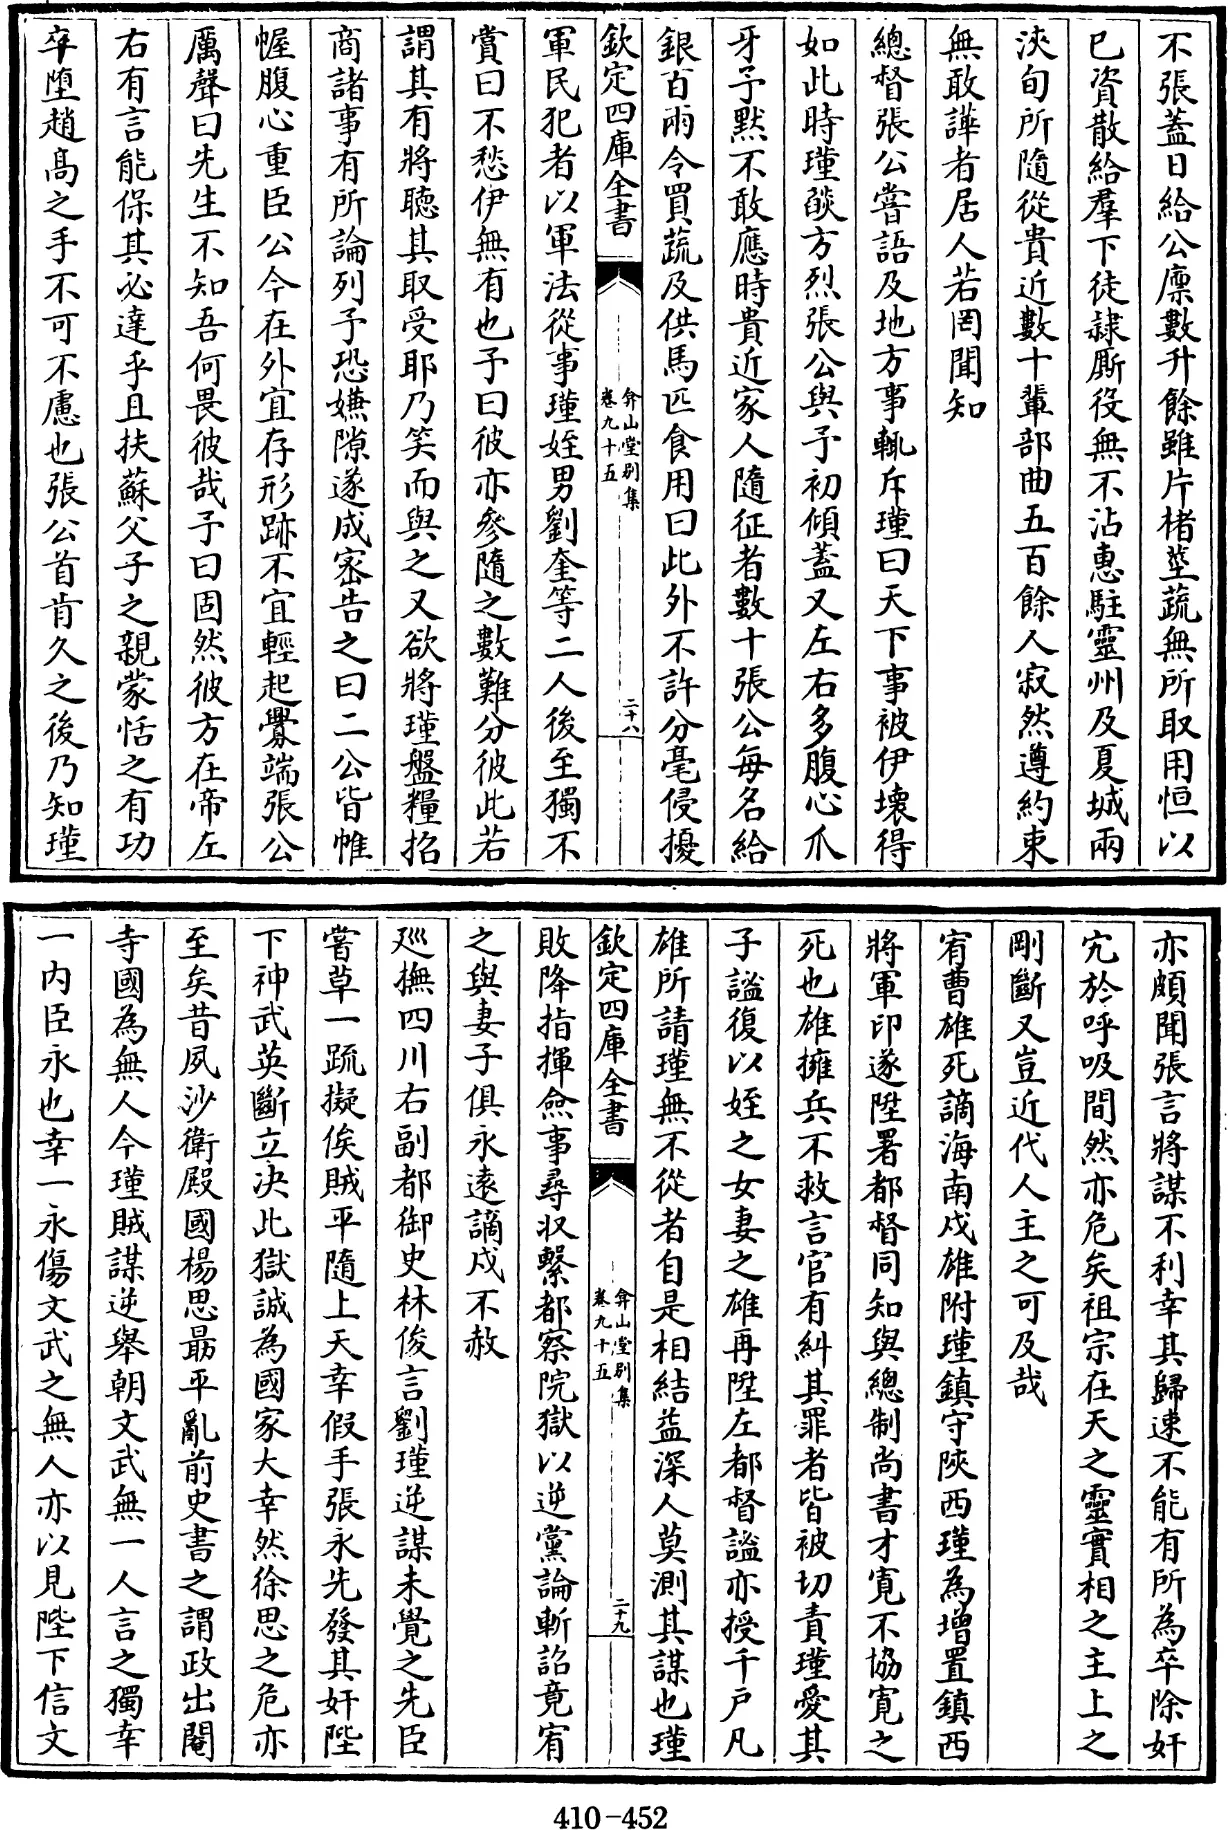 不張蓋日給公廪數升餘雖片楮莖蔬無所取用恒以
已資散給羣下徒隸厮役無不沾惠駐靈州及夏城兩
浹旬所隨從貴近數十輩部曲五百餘人寂然遵約束
無敢譁者居人若罔聞知
總督張公嘗語及地方事輒斥瑾曰天下事被伊壊得
如此時瑾燄方烈張公與予初傾蓋又左右多腹心爪
牙予黙不敢應時貴近家人隨征者數十張公每名給
銀百兩令買蔬及供馬匹食用曰此外不許分毫侵擾
欽定四庫全書
弇山堂别集
卷九十五
二十八
軍民犯者以軍法從事瑾姪男劉奎等二人後至獨不
賞曰不愁伊無有也予曰彼亦參隨之數難分彼此若
謂其有將聽其取受耶乃笑而與之又欲將瑾盤糧招
商諸事有所論列予恐嫌隙遂成密告之曰二公皆帷
幄腹心重臣公今在外宜存形跡不宜輕起釁端張公
厲聲曰先生不知吾何畏彼哉予曰固然彼方在帝左
右有言能保其必達乎且扶蘇父子之親蒙恬之有功
卒墮趙髙之手不可不慮也張公首肯久之後乃知瑾
亦頗聞張言將謀不利幸其歸速不能有所為卒除奸
宄於呼吸間然亦危矣祖宗在天之靈實相之主上之
剛斷又豈近代人主之可及哉
宥曹雄死謫海南戍雄附瑾鎮守陜西瑾為增置鎮西
將軍印遂陞署都督同知與總制尚書才寛不協寛之
死也雄擁兵不救言官有糾其罪者皆被切責瑾愛其
子謐復以姪之女妻之雄再陞左都督謐亦授千户凡
雄所請瑾無不從者自是相結益深人莫測其謀也瑾
欽定四庫全書
弇山堂别集
卷九十五
二十九
敗降指揮僉事尋収繫都察院獄以逆黨論斬詔竟宥
之與妻子俱永遠謫戍不赦
廵撫四川右副都御史林俊言劉瑾逆謀未覺之先臣
嘗草一疏擬俟賊平隨上天幸假手張永先發其奸陛
下神武英斷立决此獄誠為國家大幸然徐思之危亦
至矣昔夙沙衛殿國楊思朂平亂前史書之謂政出閹
寺國為無人今瑾賊謀逆舉朝文武無一人言之獨幸
一内臣永也幸一永傷文武之無人亦以見陛下信文
410-452